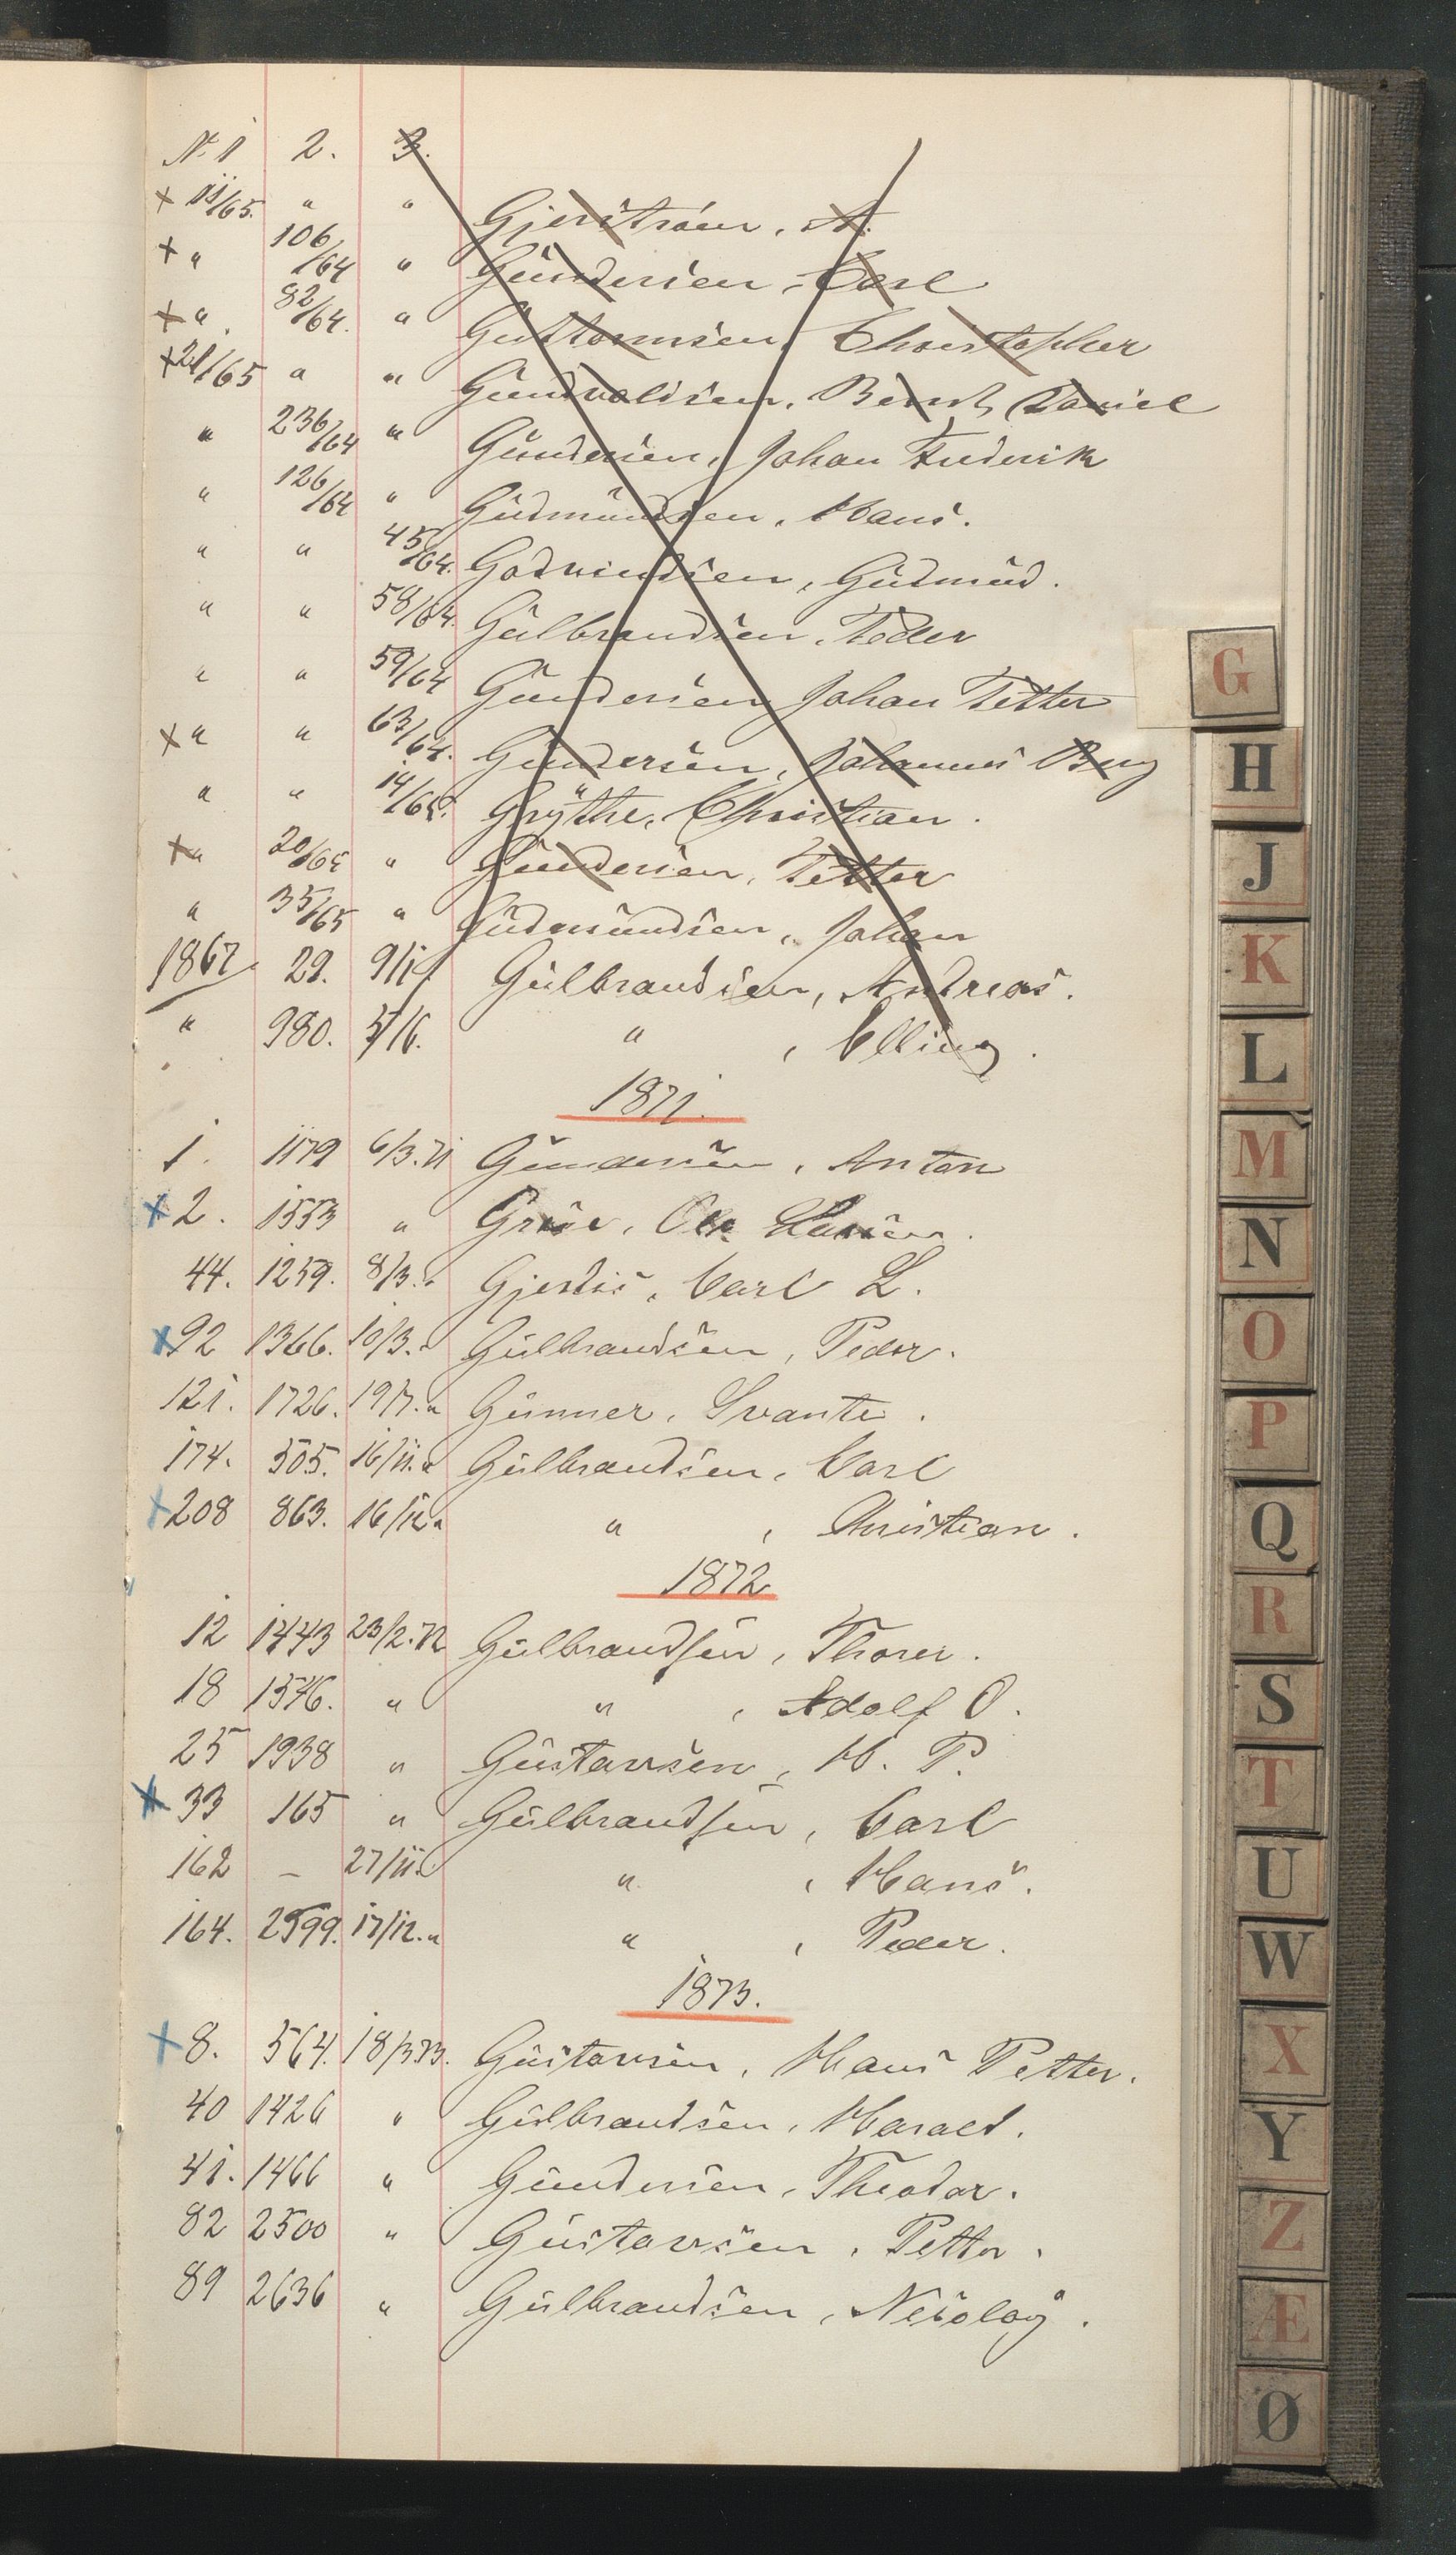 No 1 2. 3.
+ 11/65. " " Gjerstrøm, A.
+ " 106/64 " Gundersen, Carl
+ " 82/64. " Guttormsen, Christopher
+ 21/65 " " Gundvaldsen, Bernt Daniel
" 236/64 " Gundersen, Johan Frederik
" 126/64 " Gudmundsen, Hans.
" " 45/64. Godvindsen, Gudmud.
" " 58/64. Gulbrandsen, Peder
" " 59/64 Gundersen, Johan Petter
+ " " 63/64. Gundersen, Johannes Berg
" " 14/65. Grythe, Christian.
+ " 20/65 " Gundersen, Petter
" 35/65 " Gudmundsen, Johan
1867. 29. 9/1. Gulbrandsen, Andreas.
" 980. 5/16. " , Elling.
1871.
1. 1179 6/3.71 Gundersen, Anton
+ 2. 1553 " Grue, Ole Larsen.
44. 1259. 8/3. " Gjerdis, Carl L.
x 92 1366. 10/3. " Gulbrandsen, Peder.
121. 1726. 19/7. " Gunner, Svante.
174. 505. 16/11. " Gulbrandsen, Carl
+ 208 863. 16/12 " " , Christian.
1872
12 1443 23/2.72 Gulbrandsen, Thorer.
18 1546. " " , Adolf O.
25 1938 " Gustavsen, H. P.
x 33 165 " Gulbrandsen, Carl
162 – 27/11. " " , Hans.
164. 2599. 17/12. " " , Peder.
1873.
+ 8. 564. 18/3 73. Gustavsen, Hans Petter.
40 1426 " Gulbrandsen, Harald.
41. 1466 " Gundersen, Theodor.
82 2500 " Gustavsen, Petter.
89 2636 " Gulbrandsen, Nicolay.
G
H
J
K
L
M
N
O
P
Q
R
S
T
U
W
X
Y
Z
Æ
Ø